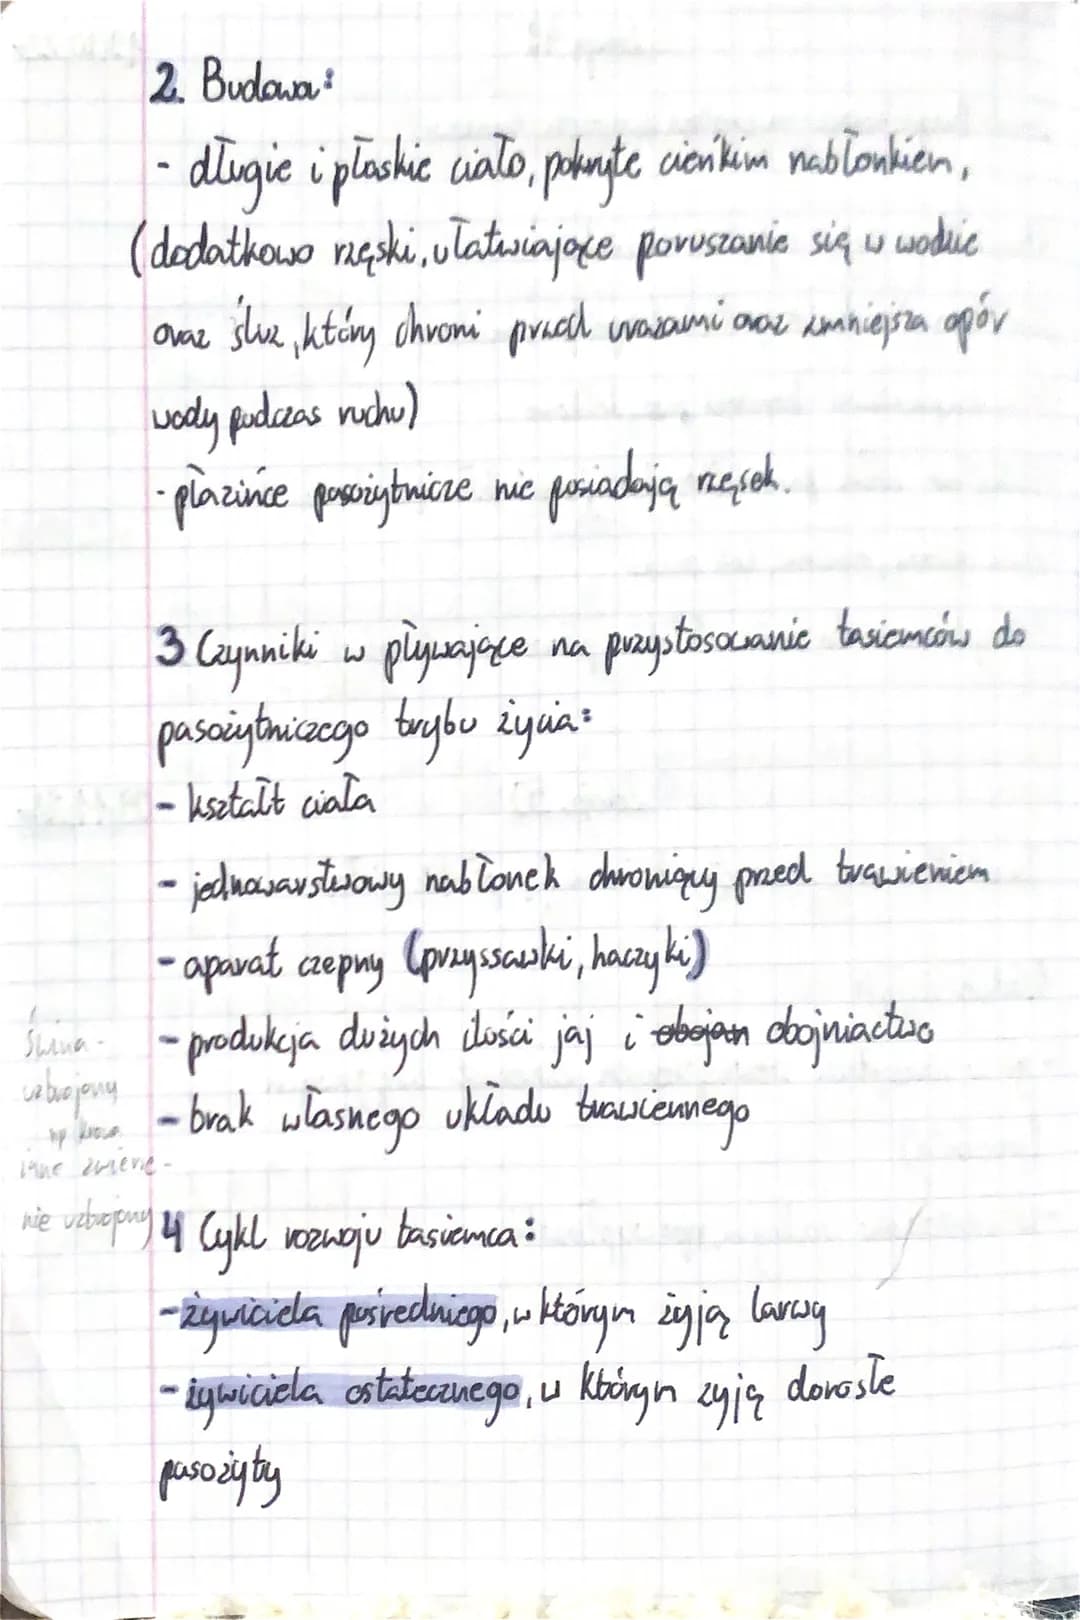 2. Budowa:
- długie i płaskie ciało, pokryte cieńkim nabłonkiem,
(dodatkowo rzęski, ułatwiające poruszanie się w wodzie
oraz śluz, który chroni przed urazami oraz zmniejsza opór
wody podczas ruchu)
- płazińce pasożytnicze nie posiadają rzęsek.
3 Czynniki w pływające na przystosowanie tasiemców do
pasożytniczego trybu życia:
- kształt ciała
- jednowarstwowy nabłonek chroniący przed trawieniem
- aparat czepny (przyssawki, haczyki)
- produkcja dużych ilości jaj i obojan obojniactwo
- brak własnego układu trawiennego
świna -
uzbrojony
np krowa
inne zwierzę -
nie uzbrojony
4 Cykl rozwoju tasiemca:
- żywiciela pośredniego, w którym żyją larwy
- żywiciela ostatecznego, w którym zyją dorosłe
pasożyty